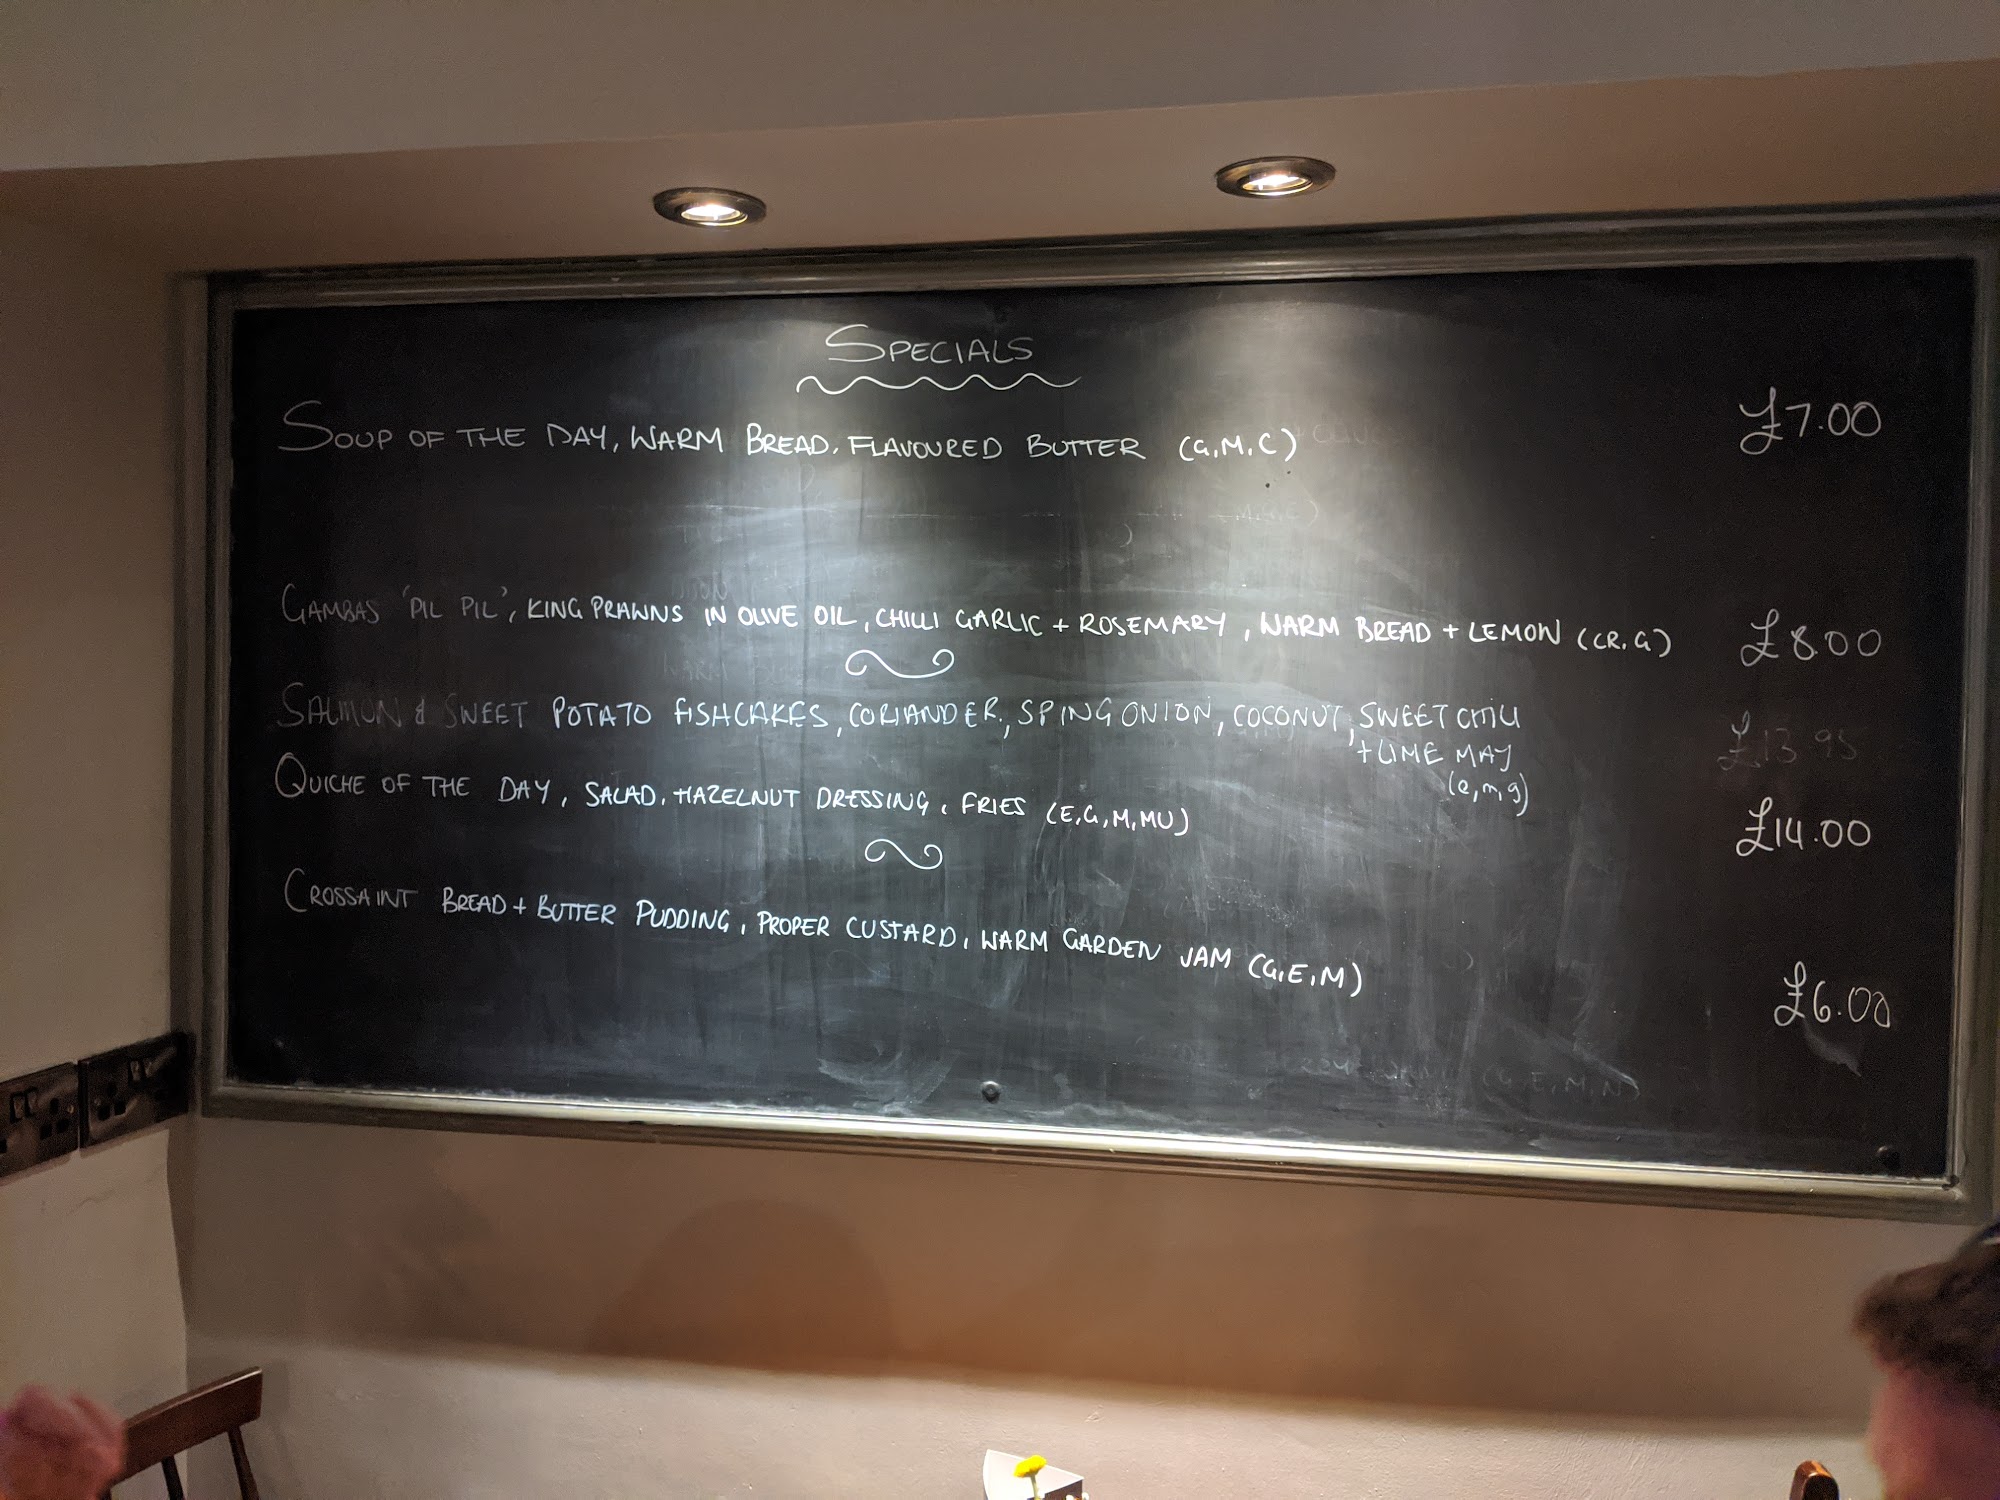 SPECIALS
SOUP OF THE DAY, WARM BREAD, FLAVOURED BUTTER (G, M, C) £7.00
GAMBAS 'PIL PIL', KING PRAWNS IN OLIVE OIL, CHILLI GARLIC + ROSEMARY, WARM BREAD + LEMON (CR, G) £8.00
SALMON & SWEET POTATO FISHCAKES, CORIANDER, SPING ONION, COCONUT, SWEET CHILI £13.95
+ LIME MAY
(e, m, g)
QUICHE OF THE DAY, SALAD, HAZELNUT DRESSING, FRIES (E, G, M, MU) £14.00
CROSSAINT BREAD + BUTTER PUDDING, PROPER CUSTARD, WARM GARDEN JAM (G, E, M) £6.00